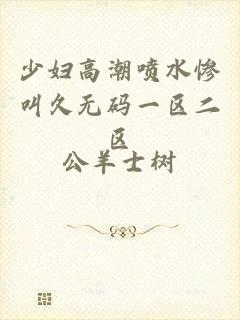 少妇高潮喷水惨
叫久无码一区二
区
公羊士树